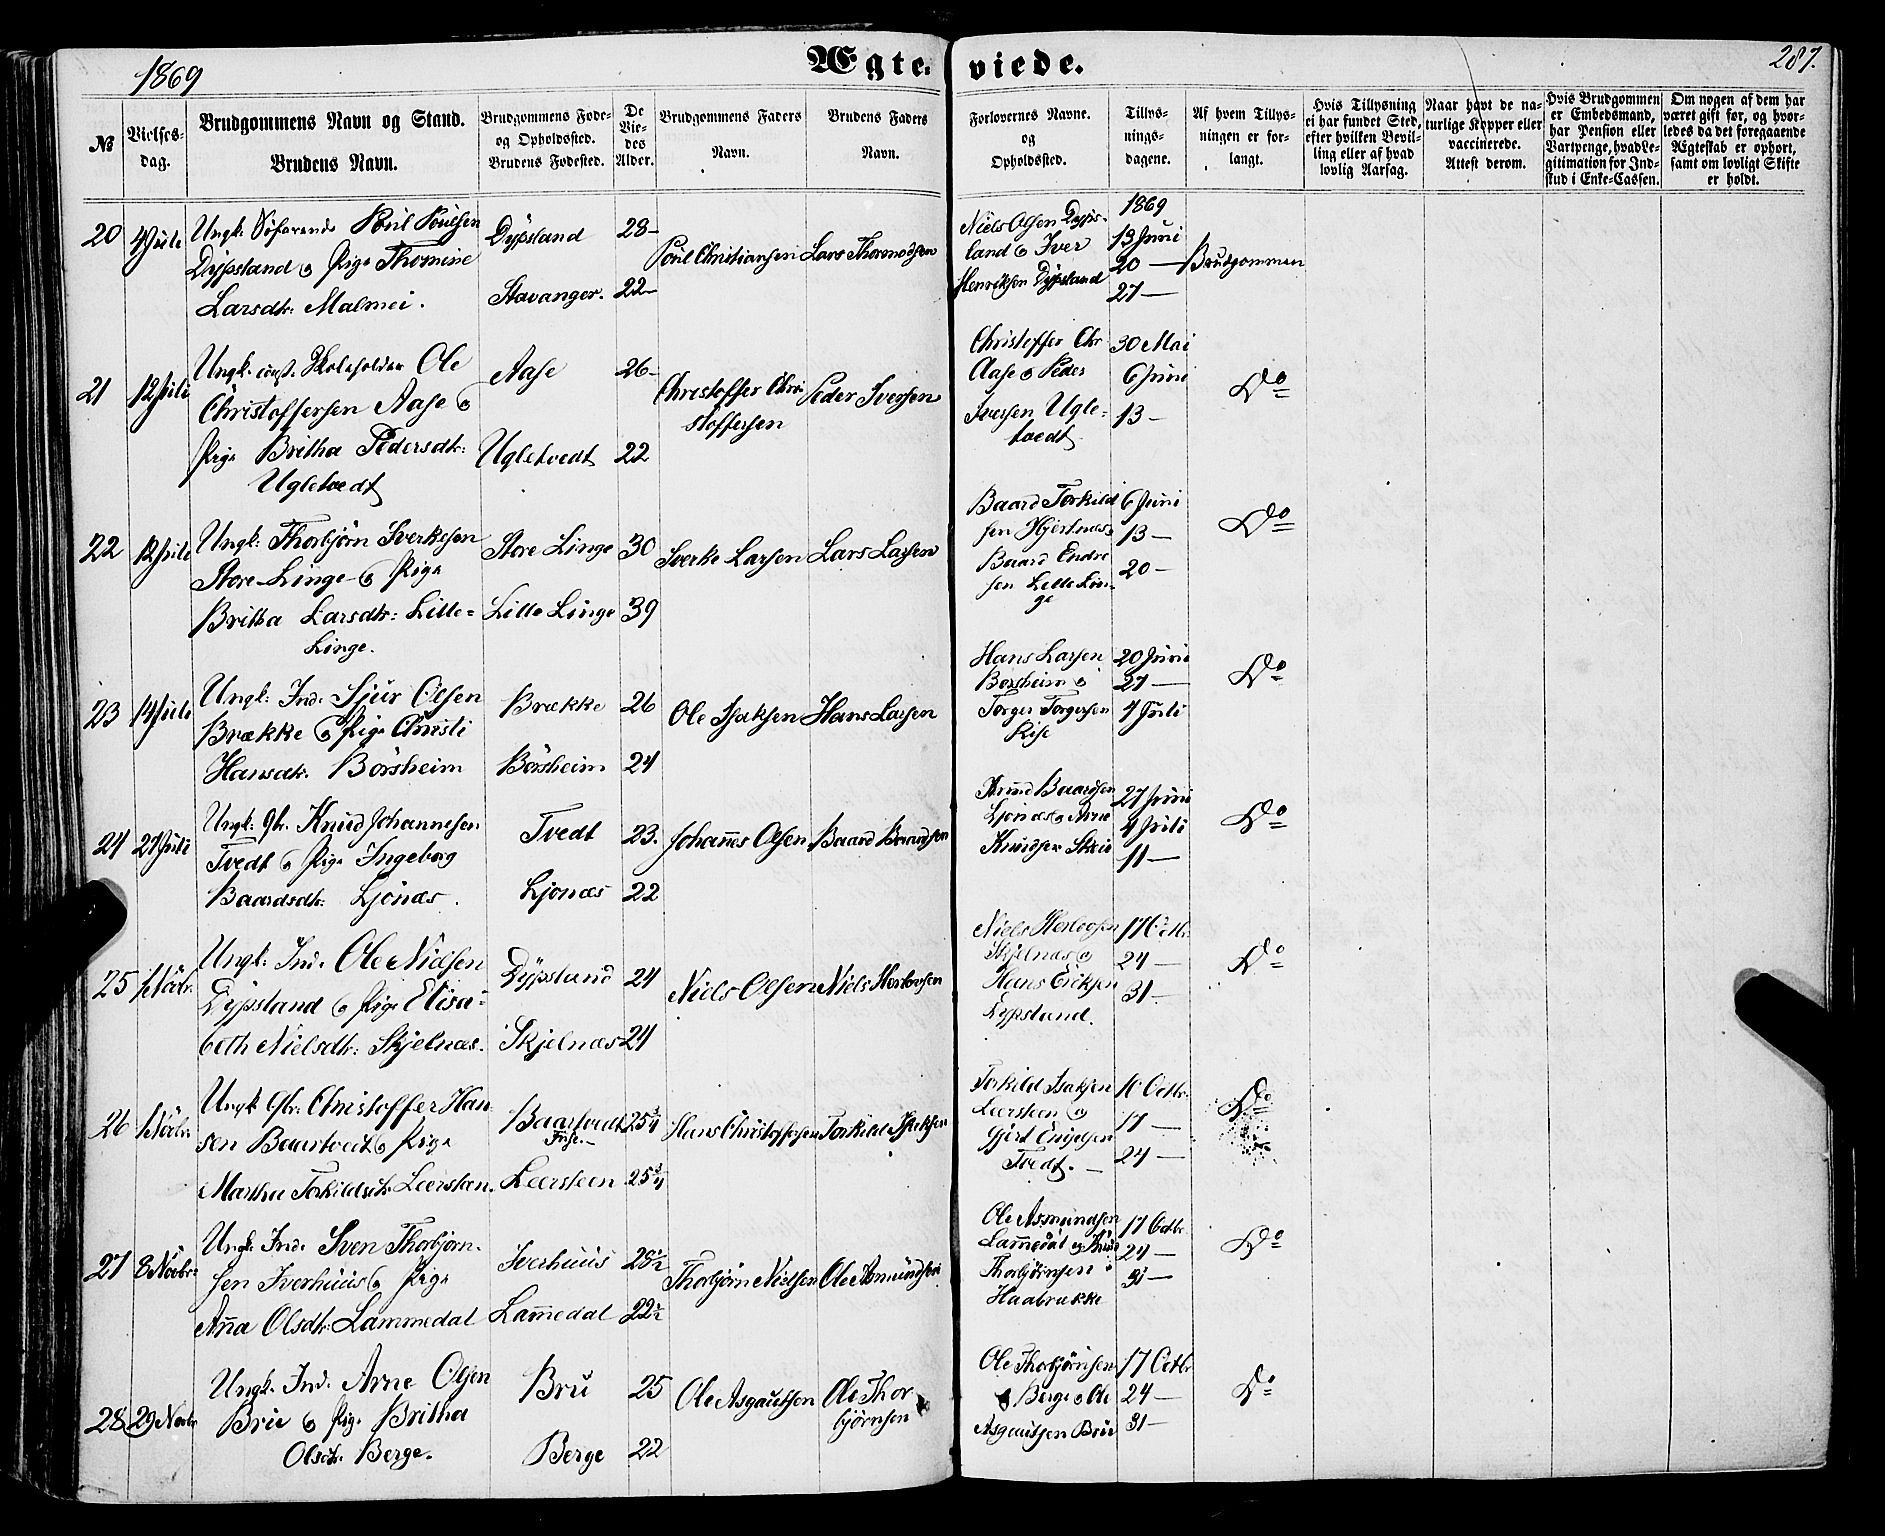 1869
Ægte-
viede.
287.
No
Vielses-
dag.
Brudgommens Navn og Stand.
Brudens Navn.
Brudgommens Føde-
og Opholdssted.
Brudens Fødested.
De
Vie-
des
Alder.
Brudgommens Faders
Navn.
Brudens Faders
Navn.
Forlovernes Navne.
og
Opholdssted.
Tillys-
nings-
dagene.
Af hvem Tillys-
ningen er for-
langt.
Hvis Tillysning
ei har fundet Sted,
efter hvilken Bevil-
ling eller af hvad
lovlig Aarsag.
Naar havt de na-
turlige Kopper eller
vaccinerede.
Attest derom.
Hvis Brudgommen
er Embedsmand,
har Pension eller
Vartpenge, hvad Le-
gitimation for Ind-
skud i Enke-Cassen.
Om nogen af dem har
været gift før, og hvor-
ledes da det foregaaende
Ægteskab er ophørt,
samt om lovligt Skifte
er holdt.
20
4 Juli
Ungk: Söfarende Poul Poulsen
Dypsland o Pige Thomine
Larsdtr: Malmei.
Dypsland
Stavanger.
28-
22-
Poul Christiansen
Lars Thormodsen
Niels Olsen Dyps-
land o Iver
Henriksen Dypsland
1869
13 Juni
20 —
27 —
Brudgommen
21
12 Juli
Ungk. const. Skoleholder Ole
Christoffersen Aase o
Pige Britha Pedersdtr:
Ugletvedt
Aase
Ugletvedt
26-
22
Christoffer Chri
stoffersen
Peder Iversen
Christoffer Chr
Aase o Peder
Iversen Ugle-
tvedt
30 Mai
6 Juni
13 —
Do
22
12 Juli
Ungk: Thorbjörn Sverkesen
Store-Linge o Pige
Britha Larsdtr: Lille-
Linge.
Store Linge
Lille Linge
30
39
Sverke Larsen
Lars Larsen
Baard Torkild
sen Hjertnæs o
Baard Endre
sen Lille Lin-
ge
6 Juni
13 —
20 —
Do
23
14 Juli
Ungk: Ind. Sjur Olsen
Brække o Pige Christi
Hansdtr. Börsheim
Brække
Börsheim
26
24
Ole Isaksen
Hans Larsen
Hans Larsen
Borsheim o
Torger Torgersen
Rise
20 Juni
27 —
4 Juli
Do
24
27 Juli
Ungk. Gbr. Knud Johannesen
Tvedt o Pige Ingeborg
Baardsdtr: Ljönæs.
Tvedt
Ljonæs
23.
22
Johannes Olsen
Baard Baardsen
Baardsen
Ljonæs o Arne
Knudsen Skeie
27 Juni
4 Juli
11 —
Do
25
1 Novbr.
Ungk: Ind. Ole Nielsen
Dypsland o Pige Elisa-
beth Nielsdtr: Skjelnæs.
Dypsland
Skjelnæs
24
24
Niels Olsen
Niels Herlovsen
Niels Herlovsen
Skjelnæs o
Hans Eriksen
Dypsland.
17 Octbr.
24 —
31 —
Do
26
1 Novbr
Ungk Gbr. Christoffer Han-
sen Baartvedt o Pige
Martha Torkildsdtr. Leersteen.
Baartvedt
Fuse.
Leersteen
25 3/4
25 3/4
Hans Christoffersen
Torkild Isaksen
Torkild Isaksen
Leersteen o
Gjert Engelsen
Tvedt.
10 Octbr.
17 —
24 —
Do
27
8 Novbr:
Ungk. Ind. Sven Thorbjörn-
sen Iverhuus o Pige
Anna Olsdtr: Lammedal
Iverhuus
Lammedal
28 1/2
22 1/2
Thorbjörn Nielsen
Ole Asmundsen
Ole Asmundsen
Lammedal og Knud
Thorbjørnsen
Haabrække
17 Octbr
24 —
31 —
Do
28
29 Novbr
Ungk. Ind. Arne Olsen
Brue o Pige Britha
Olsdtr. Berge.
Bru
Berge
25
22
Ole Asgautsen
Ole Thor
bjørnsen
Ole Thorbjörnsen
Berge o Ole
Asgautsen Brue
17 Octbr
24 —
31 —
Do